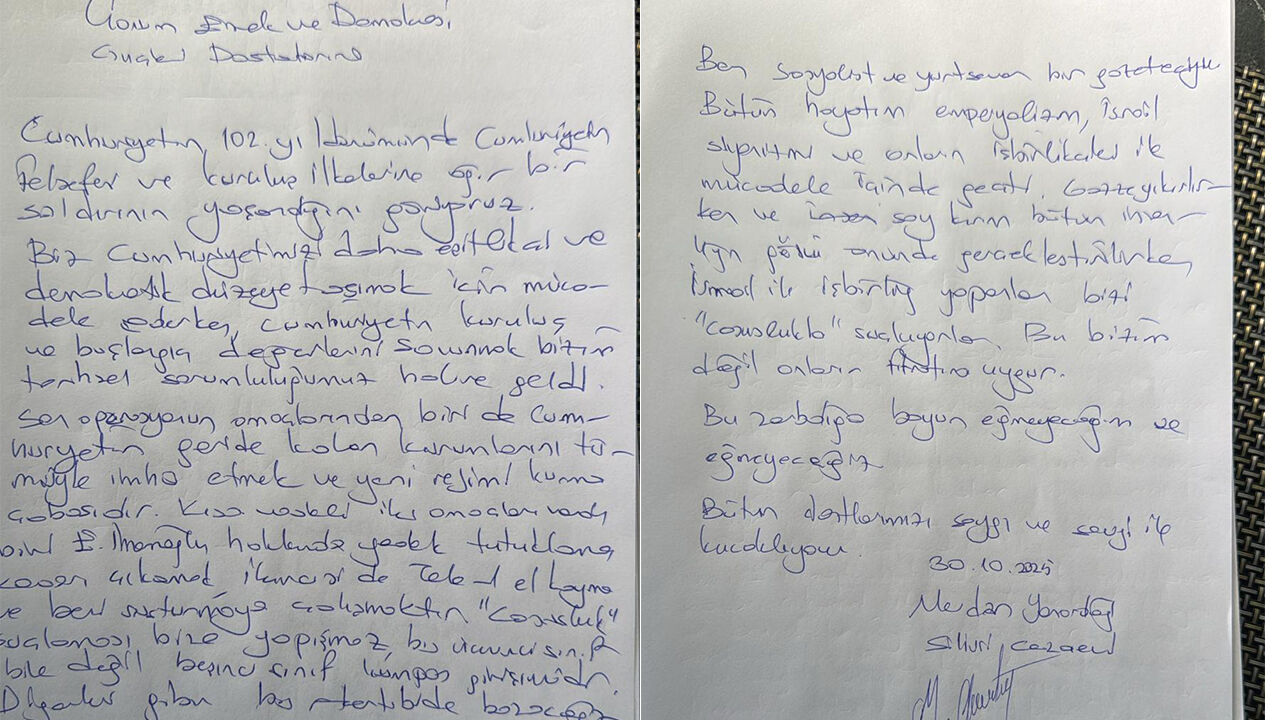 Çorum Emek ve Demokrasi
Güçleri Dostlarına
Cumhuriyetin 102. yıldönümünde Cumhuriyetin
felsefesi ve kuruluş ilkelerine ağır bir
saldırının yaşandığını görüyoruz.
Biz Cumhuriyetimizi daha eşitlikçi ve
demokratik düzeye taşımak için müca-
dele ederken, cumhuriyetin kuruluş
ve başlangıç değerlerini savunmak bizim
tarihsel sorumluluğumuz haline geldi.
Son operasyonun amaçlarından biri de Cum-
huriyetin geride kalan kurumlarını tü-
müyle imha etmek ve yeni rejimi kurma
çabasıdır. Kısa vadeli iki amaçları vardı
biri E. İmamoğlu hakkında yedek tutuklama
kararı çıkarmak ikincisi de Tele 1 el koyma
ve beni susturmaya çalışmaktır. "Casusluk"
suçlaması bize yapışmaz, bu üçüncü sınıf
bile değil beşinci sınıf kumpas girişimidir.
Diğerleri gibi bu tertibi de bozacağız
Ben sosyalist ve yurtsever bir gazeteciyim
Bütün hayatım emperyalizm, İsrail
siyonizmi ve onların işbirlikçileri ile
mücadele içinde geçti. Gazze yıkılır-
ken ve soykırım bütün insan-
lığın gözü önünde gerçekleştirilirken,
İsrail ile işbirliği yapanlar bizi
"casuslukla" suçluyorlar. Bu bizim
değil onların fıtratına uygun.
Bu zorbalığa boyun eğmeyeceğim ve
eğmeyeceğiz
Bütün dostlarımızı saygı ve sevgi ile
kucaklıyorum.
30.10.2025
Merdan Yanardağ
Silivri Cezaevi